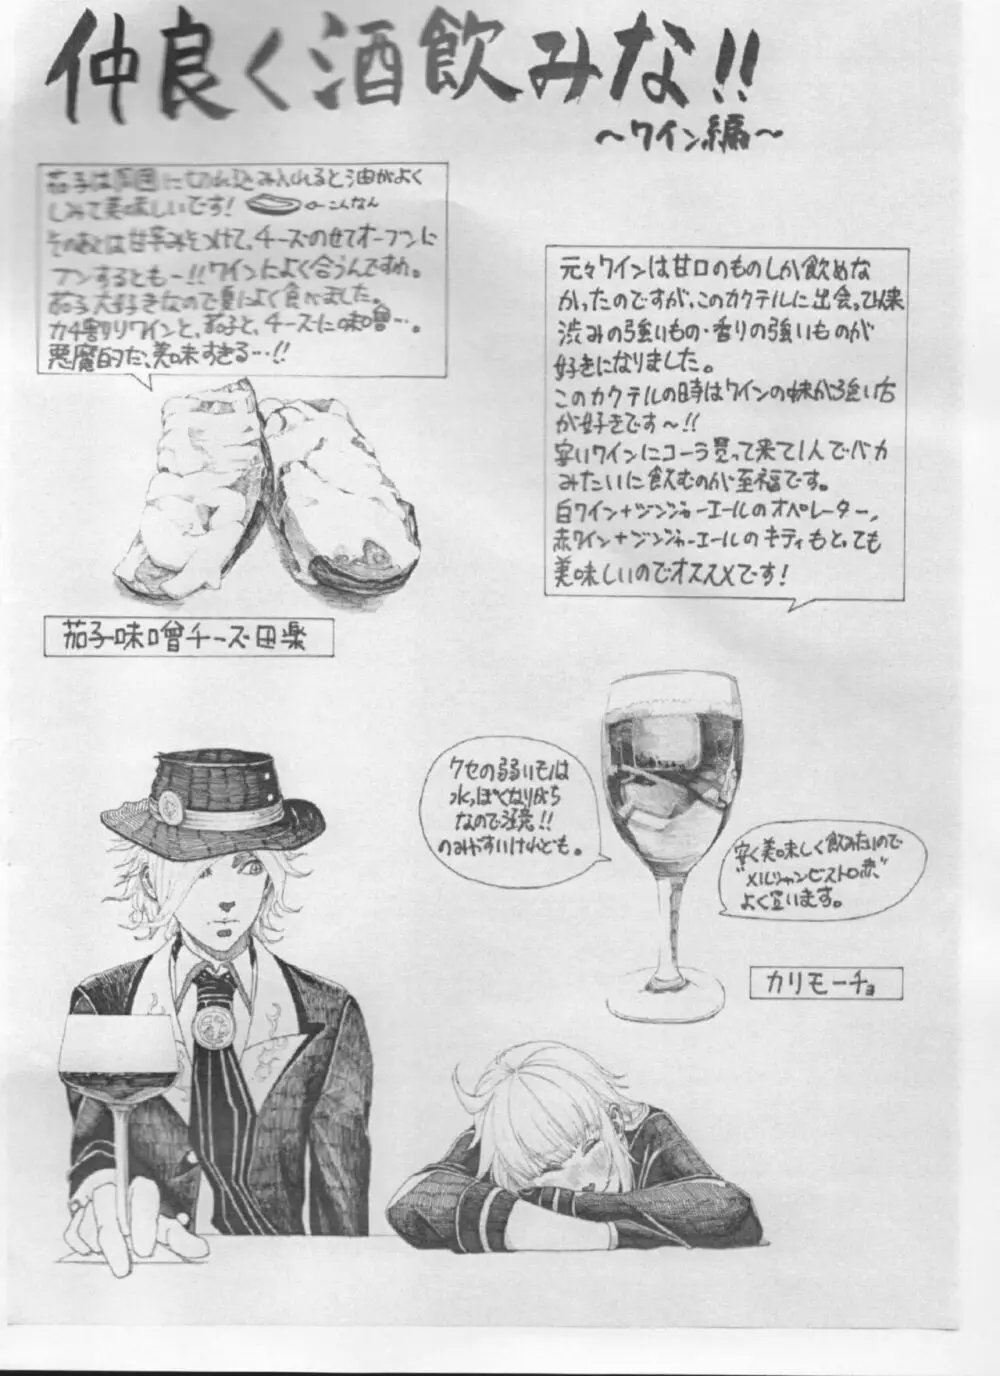 仲良く酒飲みな!!
～ワイン編～
茄子は周囲に切れ込み入れると油がよく
しみて美味しいです! ←こんなん
そのあとは甘辛みそつけて、チーズのせてオーブンに
ブンするともー!!ワインによく合うんですわ。
茄子大好きなので夏によく食べました。
カチ割りワインと、茄子と、チーズに味噌…。
悪魔的だ、美味すぎる…!!
茄子味噌チーズ田楽
元々ワインは甘口のものしか飲めな
かったのですが、このカクテルに出会って以来
渋みの強いもの・香りの強いものが
好きになりました。
このカクテルの時はワインの味が強い方
が好きです～!!
安いワインにコーラ買って来て1人でバカ
みたいに飲むのが至福です。
白ワイン+ジンジャーエールのオペレーター、
赤ワイン+ジンジャーエールのキティもとても
美味しいのでオススメです!
クセの弱いモノは
水っぽくなりがち
なので注意!!
のみやすいけれども。
安く美味しく飲みたいので
"メルシャンビストロ赤"
よく買います。
カリモーチョ